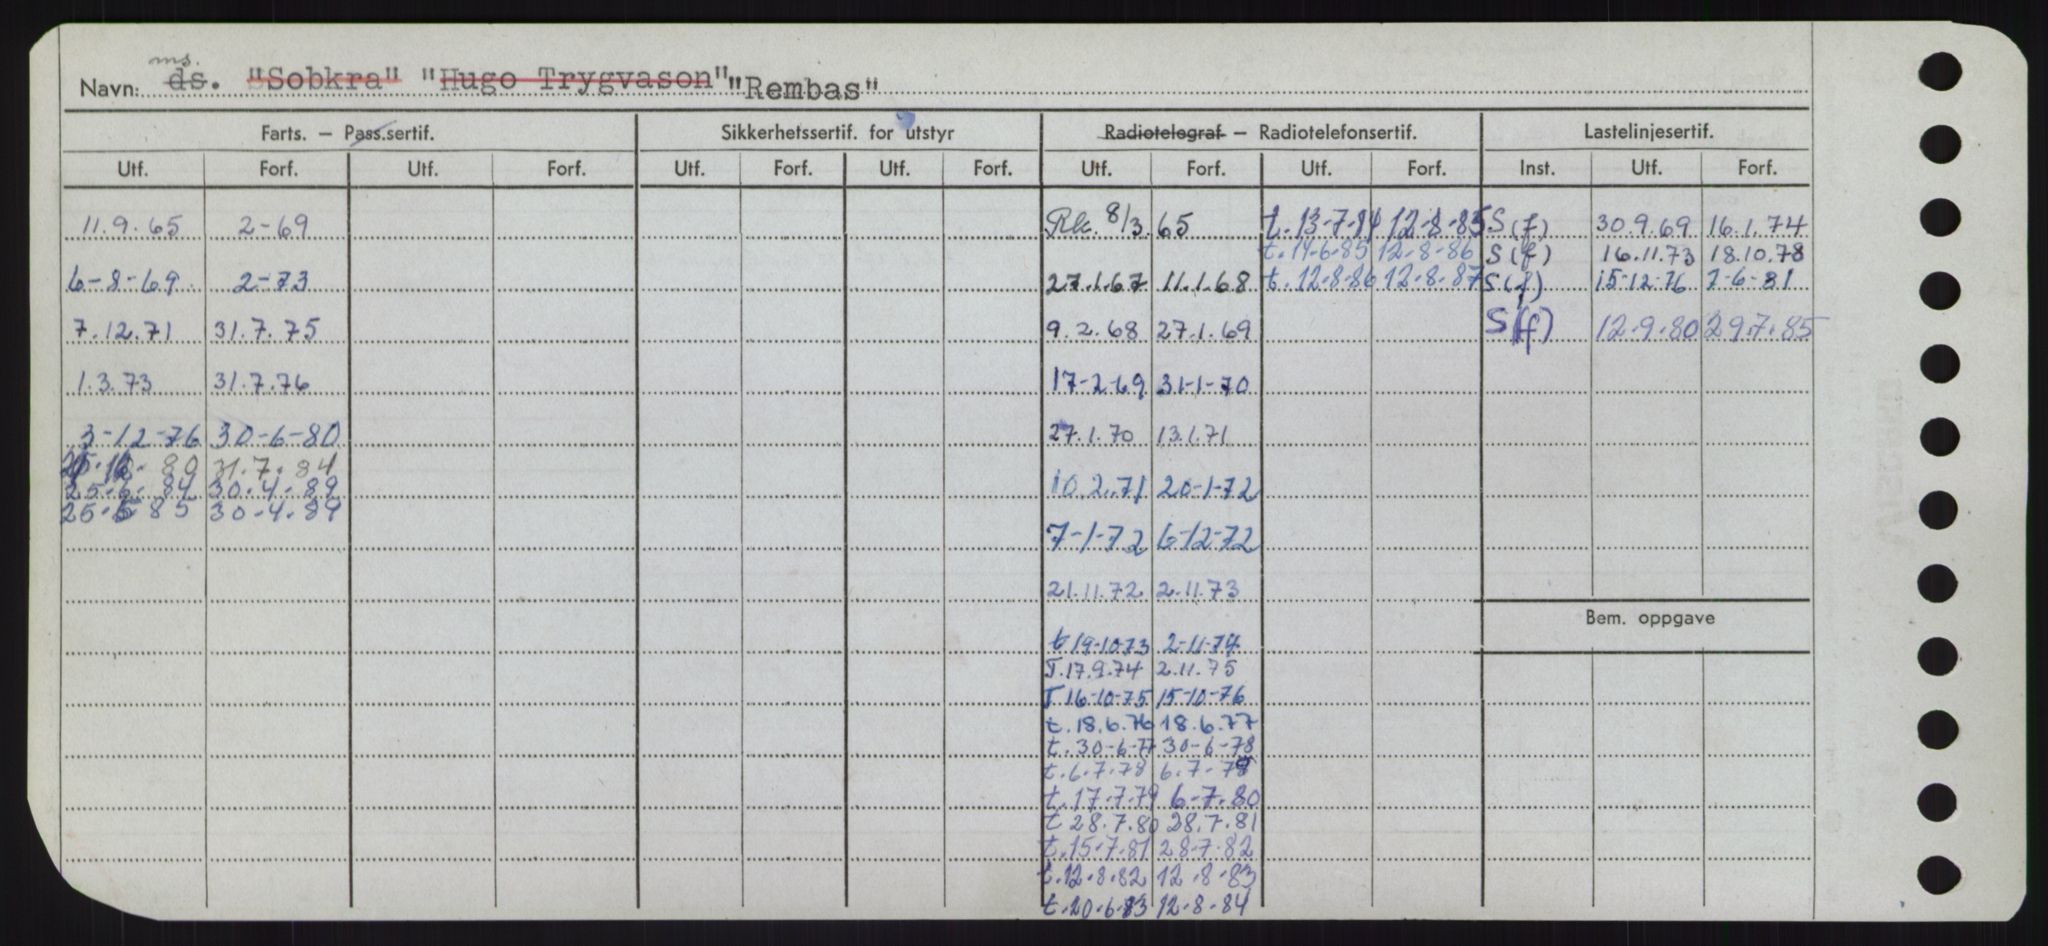 Navn: ms. ds. "Sobkra" "Hugo Trygvason" "Rembas"
Farts. — Pass.sertif. Sikkerhetssertif. for utstyr Radiotelegraf — Radiotelefonsertif. Lastelinjesertif.
Utf. Forf. Utf. Forf. Utf. Forf. Utf. Forf. Utf. Forf. Utf. Forf. Inst. Utf. Forf.
11.9.65 2-69 8/3.65 t.13-7-84 12-8-85 S(f) 30.9.69 16.1.74
t.14-6-85 12-8-86 S(f) 16.11.73 18.10.78
6-8-69 2-73 27.1.67 11.1.68 t.12-8-86 12-8-87 S(f) 15-12-76 7-6-81
7.12.71 31.7.75 9.2.68 27.1.69 S(f) 12.9.80 29.7.85
1.3.73 31.7.76 17-2-69 31-1-70
3-12-76 30-6-80 27.1.70 13.1.71
80 31.7.84
25-6-84 30.4.89 10.2.71 20-1-72
25.6 85 30.4.89
7-1-72 6-12-72
21.11.72 2.11.73
Bem. oppgave
t 19-10-73 2-11-74
T.17.9.74 2.11.75
T 16-10-75 15-10-76
t.18.6.76 18.6.77
t.30-6-77 30-6-78
t.6.7.78 6.7.79
t.17.7.79 6.7.80
t 28.7.80 28.7.81
t.15.7.81 28.7.82
t.12.8.82 12.8.83
t.20.6.83 12.8.84